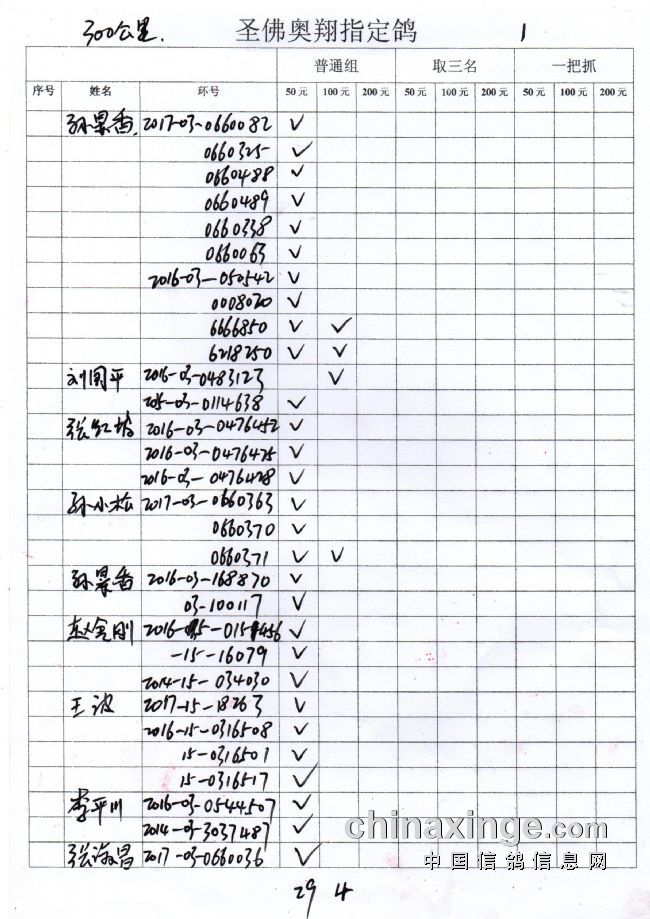 300公里. 圣佛奥翔指定鸽 1
普通组 取三名 一把抓
序号 姓名 环号 50元 100元 200元 50元 100元 200元 50元 100元 200元
孙景香 2017-03-0660082 ✓
0660325 ✓
0660488 ✓
0660489 ✓
0660338 ✓
0660063 ✓
2016-03-050542 ✓
0008020 ✓
6666850 ✓ ✓
6218250 ✓ ✓
刘国平 2016-03-0483123 ✓
205-03-0114638 ✓
张红 2016-03-0476452 ✓
2016-03-0476425 ✓
2016-03-0476428 ✓
孙小松 2017-03-0660363 ✓
0660370 ✓
0660371 ✓ ✓
孙景香 2016-03-168870 ✓
03-100117 ✓
赵金刚 2016-15-0151456 ✓
-15-16079 ✓
2014-15-034030 ✓
王波 2017-15-18263 ✓
2016-15-0316508 ✓
15-0316501 ✓
15-0316517 ✓
李平川 2016-03-0544507 ✓
2014-03-3037487 ✓
张淑昌 2017-03-0660036 ✓
chinaxinge.com
中国信鸽信息网
29 4